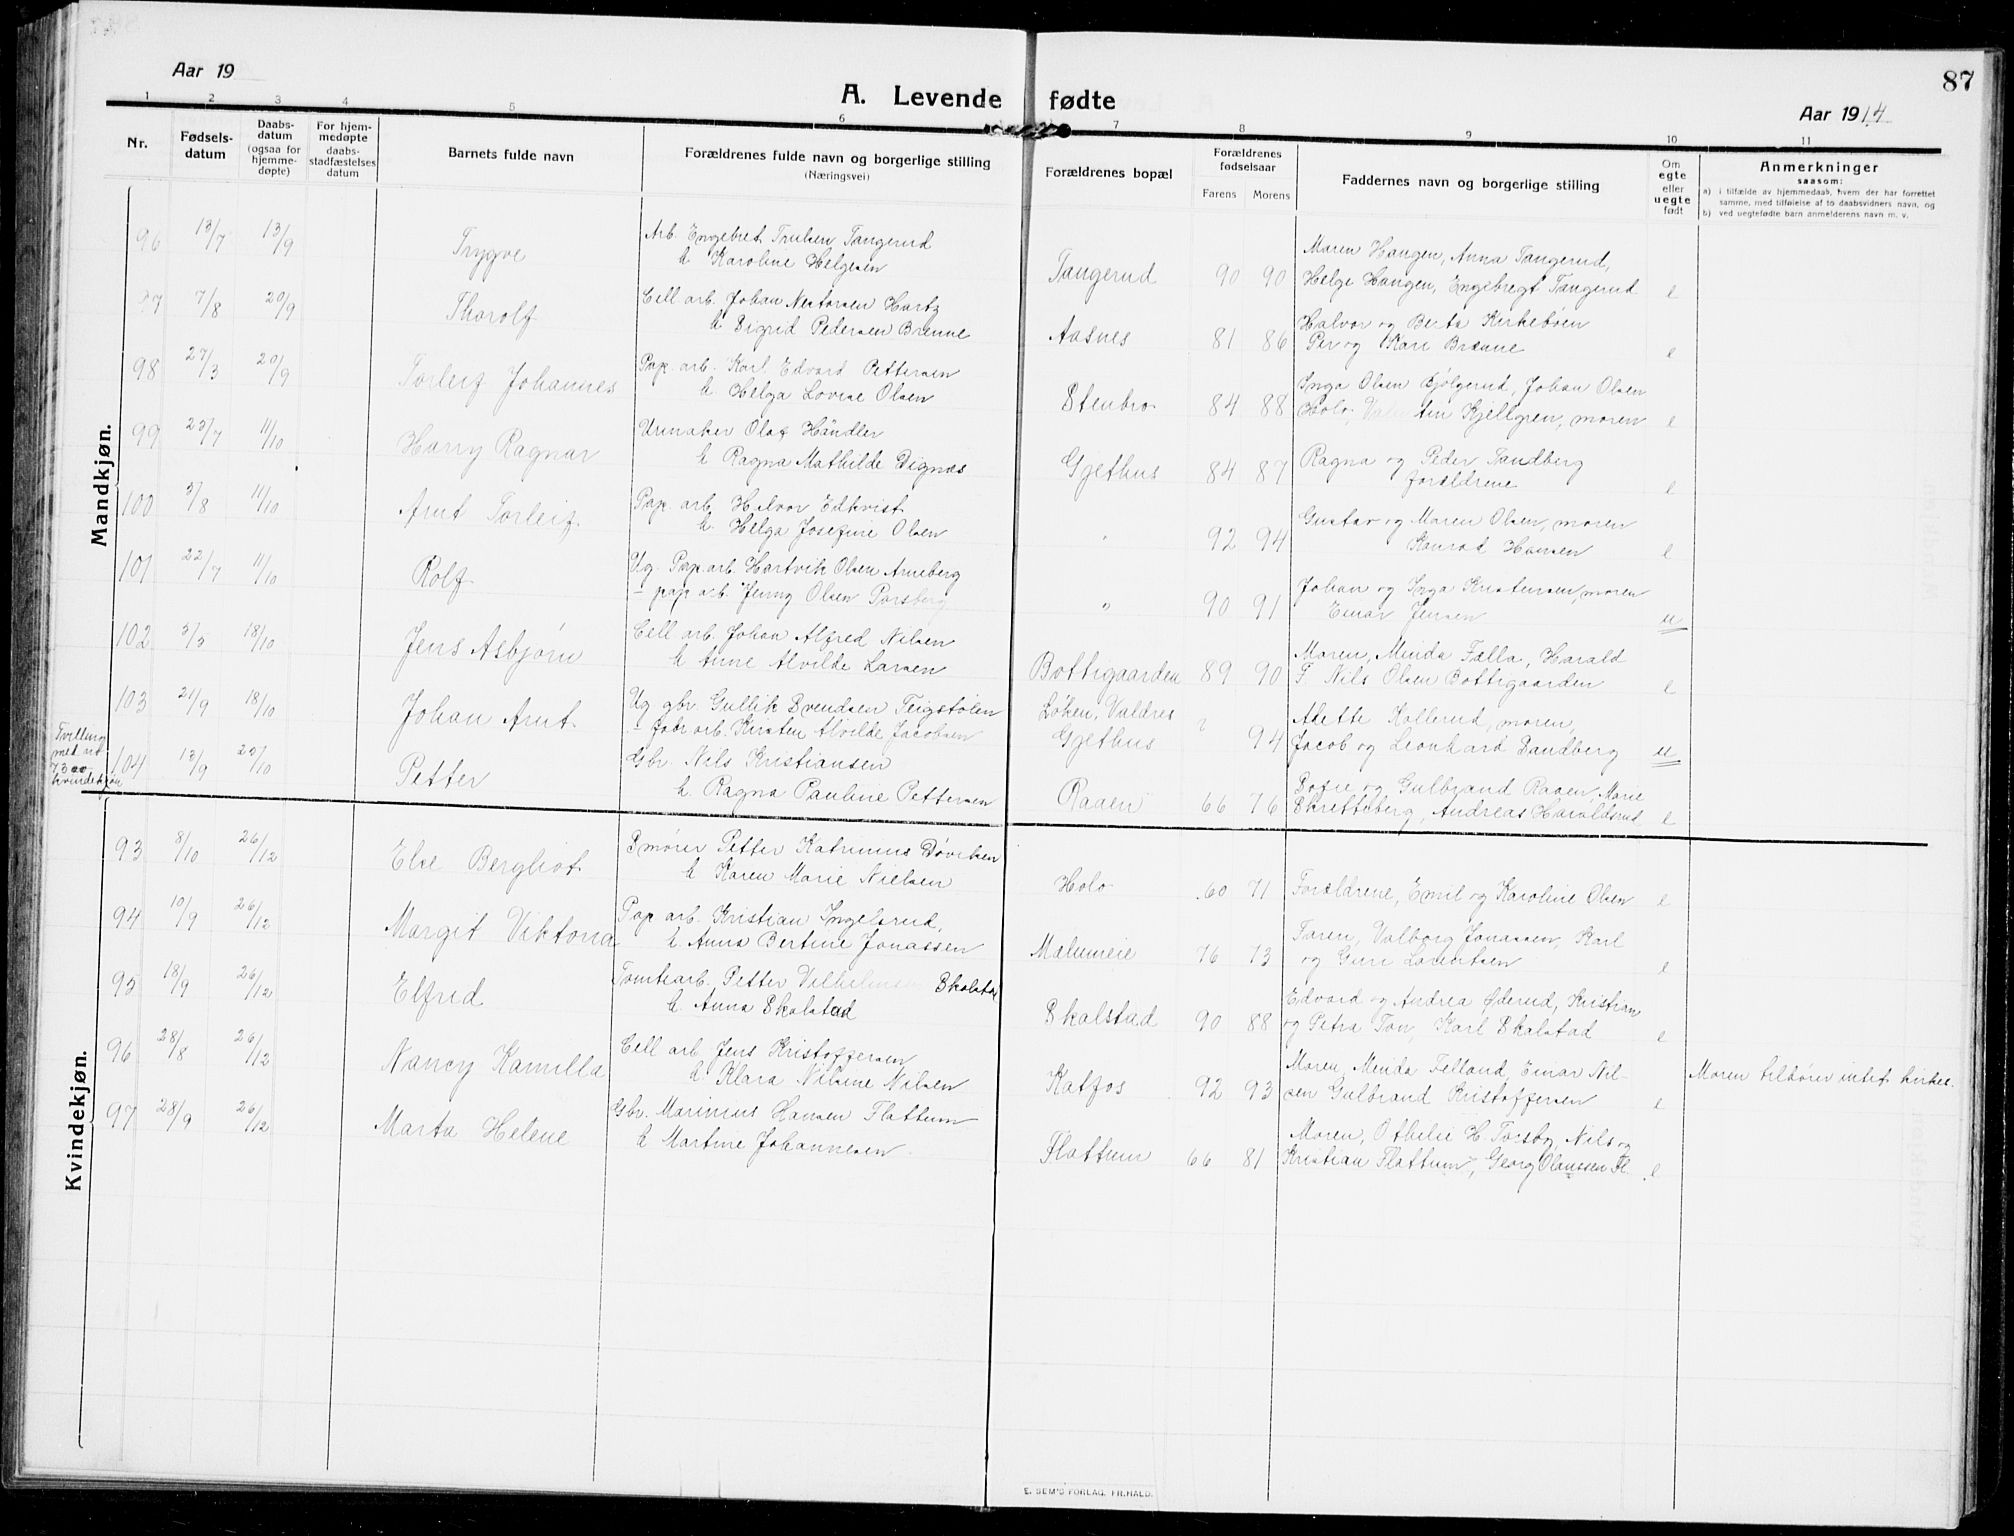 Aar 19
87
A. Levende fødte
Aar 1914
1 2 3 4 5 6 7 8 9 10 11
Nr.
Fødsels-
datum
Daabs-
datum
(ogsaa for
hjemme-
døpte)
For hjem-
medøpte
daabs-
stadfæstelses
datum
Barnets fulde navn
Forældrenes fulde navn og borgerlige stilling
(Næringsvei)
Forældrenes bopæl
Forældrenes
fødselsaar
Farens Morens
Faddernes navn og borgerlige stilling
Om
egte
eller
uegte
født
Anmerkninger
saasom:
a) i tilfælde av hjemmedaab, hvem der har forrettet
samme, med tilføielse af to daabsvidners navn, og
b) ved uegtefødte barn anmelderens navn m. v.
Mandkjøn.
96 13/7 13/9 Trygve
Arb. Engebret Trulsen Tangerud
h Karoline Helgesen
Tangerud 90 90
Maren Haugen, Anna Tangerud,
Helge Haugen, Engebregt Tangerud e
97 7/8 20/9 Thorolf
Cell arb. Johan Nestorsen Hartz
h Sigrid Pedersen Brenne
Aasnes 81 86
Halvor og Berta Kirkebøen
Per og Kari Brenne e
98 27/3 20/9 Torleif Johannes
Pap. arb. Karl Edvard Pettersen
h. Helga Lovise Olsen
Stenbro 84 88
Inga Olsen Bjølgerud, Johan Olsen
Holo, Kjellgren, moren e
99 23/7 11/10 Harry Ragnar
Urmaker Olaf Händler
h Ragna Mathilde Dignæs
Gjethus 84 87
Ragna og Peder Sandberg
forældrene e
100 3/8 11/10 Arnt Torleif
Pap arb. Halvor Edkvist
h. Helga Josefine Olsen
" 92 94
Gustav og Maren Olsen, moren
Konrad Hansen e
101 22/7 11/10 Rolf
Ug. Pap. arb. Hartvik Olsen Arneberg
- pap arb. Jenny Olsen Porsberg
" 90 91
Johan og Inga Kristensen, moren
Einar Jensen u
102 3/3 18/10 Jens Asbjørn
Cell arb. Johan Alfred Nilsen
h Anne Alvilde Larsen
Bottigaarden 89 90
Moren, Minda Fælla, Harald
F. Nils Olsen Bottigaarden e
103 21/9 18/10 Johan Arnt
Ug gbr. Gullik Svendsen Teigstølen
- fabr arb. Kirsten Alvilde Jacobsen
Løken, Valdres
Gjethus ? 94
Adette Kollerud, moren,
Jacob og Leonhard Sandberg u
Tvilling
med nr
73
kvindekjøn
104 13/9 25/10 Petter
Gbr. Nils Kristiansen
h. Ragna Pauline Pettersen
Raaen 66 76
Sofie og Gulbrand Raaen, Marie
Skretteberg, Andreas Haraldsrud e
Kvindekjøn.
93 8/10 26/12 Else Bergliot
Smører Petter Katrinius Døviksen
h Karen Marie Nielsen
Holo 60 71
Forældrene, Emil og Karoline Olsen e
94 10/9 26/12 Margit Viktoria
Pap arb. Kristian Ingelsrud,
h Anna Bertine Jonassen
Mælumeie 76 73
Faren, Valborg Jonassen, Karl
og Guri Lorentsen e
95 18/9 26/12 Elfrid
Tomtearb. Petter Vilhelmsen Skalstad
h Anna Skalstad
Skalstad 90 88
Edvard og Andrea Øderud, Kristian
og Petra Ton, Karl Skalstad e
96 28/8 26/12 Nancy Kamilla
Cell arb. Jens Kristoffersen
h. Klara Nilsine Nilsen
Katfos 92 93
Moren, Minda Felland, Einar Nil-
sen Gulbrand Kristoffersen e
Moren tilhører intet kirkes.
97 28/9 26/12 Marta Helene
Gbr. Marinius Hansen Flattum
h Martine Johannesen
Flattum 66 81
Moren, Othelie H. Torsby, Nils og
Kristian Flattum, Georg Olaussen Fl. e
E. SEM'S FORLAG. FR.HALD.